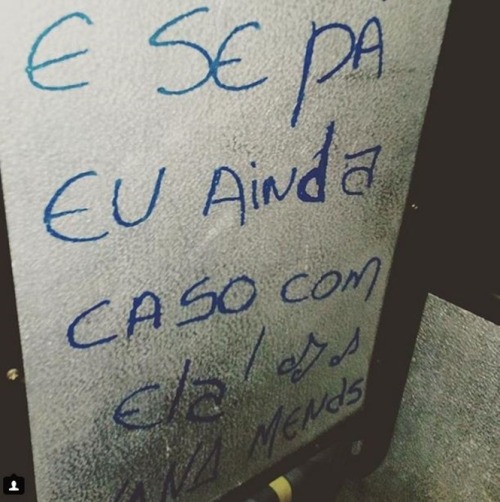 E SE PÁ
EU AINda
CASO COM
Ela! ♫ ♪
MENdS